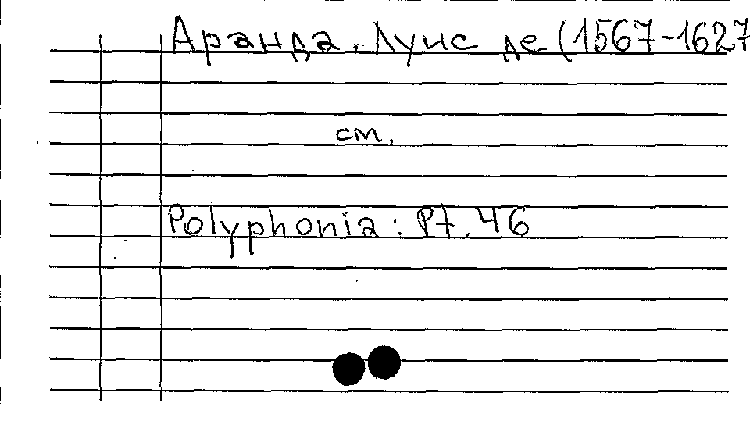 Аранда, Луис де (1567-1627
см.
Polyphonia: Pt. 46